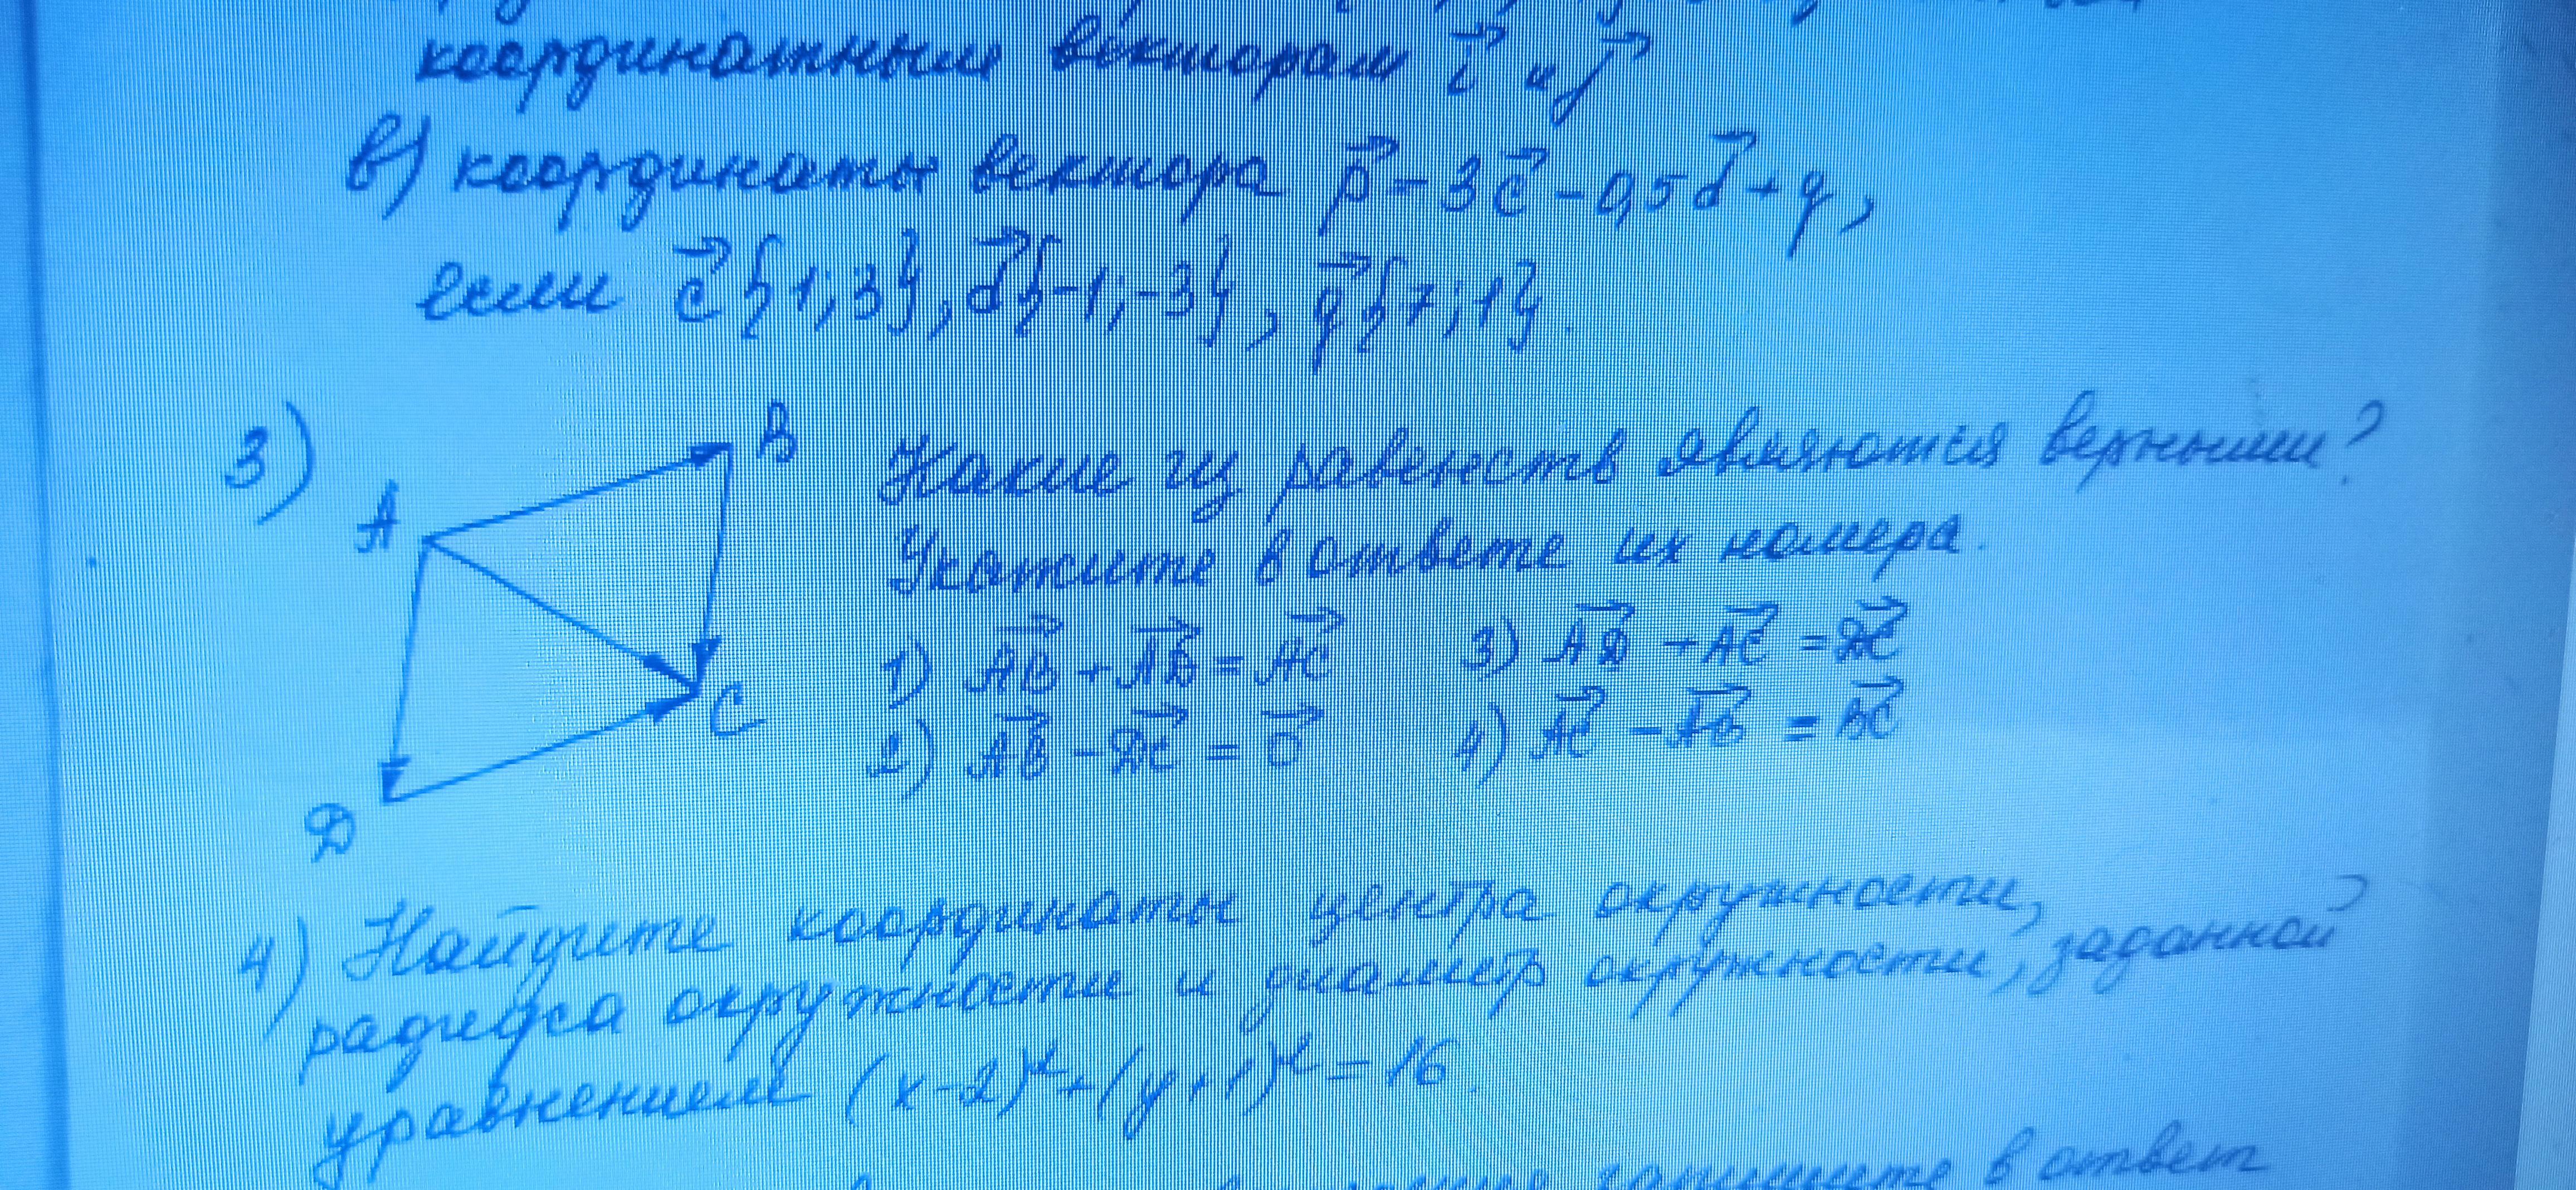 координатным векторам i⃗ и j⃗
в) координаты вектора p⃗ = 3c⃗ - 0,5d⃗ + q,
если c⃗{1; 3}, d⃗{-1; -3}, q⃗{7; 1}.
3)
A B C D
Какие из равенств являются верными?
Укажите в ответе их номера.
1) A⃗B⃗ + A⃗D⃗ = A⃗C⃗ 3) A⃗D⃗ - A⃗C⃗ = D⃗C⃗
2) A⃗B⃗ - D⃗C⃗ = 0⃗ 4) A⃗C⃗ - A⃗B⃗ = B⃗C⃗
4) Найдите координаты центра окружности,
радиуса окружности и диаметр окружности, заданной
уравнением (x-2)² + (y+1)² = 16.
запишите в ответ